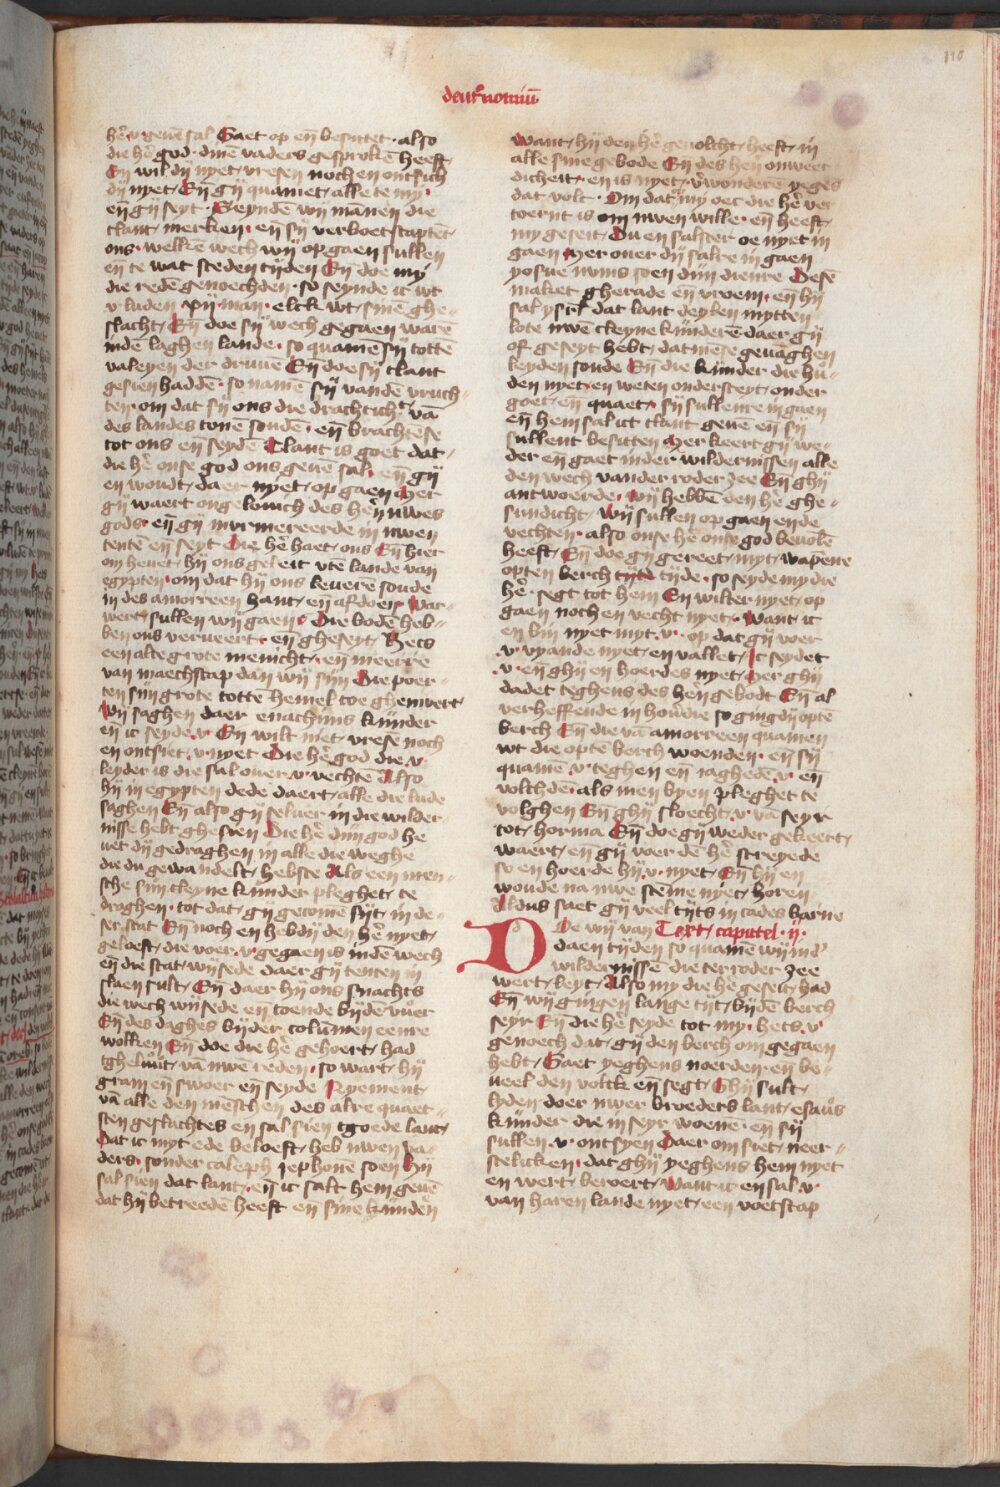 110
deut'nomiū
hē v geuē sal Gaet op eñ besittet · also
die hē god · dinē vaders gesprokē heeft
Eñ wil dy nyet vresen noch en ontsich
dy nyet Eñ gy quamet alle te my ·
eñ gy seyt · Seynden wij mānen die
tlant merken · en sy verboetscaptēt
ons · welkē wech wij op gaen sullen
eñ te wat steden tyden Eñ doe my
die redē genoechden · so seynde ic wt
v luden xij man · elck wt sinē ghe-
slacht Eñ doe sy wech gegaen warē
indē laghen lande · so quamē sy tottē
valeyen der druuē Eñ doe sy tlant
gesien haddē · so namē sy vandē vruch-
ten · om dat sy ons die drachticheit vā
des landes tonē soudē · eñ brachtēse
tot ons eñ seydē Tlant is goet dat
die hē onse god ons geuē sal · eñ gy
en woudt daer nyet op gaen Mer
gy waert ongelouich des hēn uwes
gods · eñ gy murmereerde in uwen
tentē eñ seyt Die hē haet ons Eñ hier
om heuet hy ons geleit vtē lande van
egypten · om dat hy ons leuerē soude
in des amorreen hant eñ afdoen · War-
wert sullen wy gaen · Die bodē heb-
ben ons verueert · eñ gheseyt Hets
een alte grote menicht · en meerre
van maechscap dan wy sijn Die poer-
ten sijn grote tottē hemel toe ghemuert
Wy saghen daer enachims kinder
eñ ic seyde v Eñ wilt niet vresē noch
en ontsiet v nyet Die hē god die v
leyder is die sal ouer v vechtē Also
hy in egypten dede daert alle die lude
saghen Eñ also gy seluer in die wilder-
nisse hebt ghesien Die hē dijn god he
uet dy gedraghen in alle die weghe
die du gewandelt hebste Als een men-
sche sijn cleyne kinder pleghet te
draghen · tot dat gy gecomē syt in de-
ser stat Eñ noch en hebdy den hē nyet
geloeft · die voer v gegaen is indē wech
eñ die stat wysede daer gy tenten in
slaen sult Eñ daer hy ons snachts
die wech wysede eñ toende byde vuer
Eñ des daghes byder colūmen eenre
wolken Eñ doe die hē gehoert had
tgheluut vā uwe reden · so wart hy
gram eñ swoer eñ seyde Nyement
vā alle den mēschen des alre quaet-
sten geslachtes en sal sien tgoede lant
Dat ic myt ede beloeft heb uwen va-
ders · sonder caleph jephone soen Hy
sal sien dat lant · eñ ic salt hem geuē
dat hy betreede heeft eñ sine kinderē
Want hy den hē geuolcht heeft in
alle sine gebode Eñ des hēn onweer-
dicheit en is nyet v'wonderē yeges
dat volt · Om dat my oec die hē ver
toernt is om uwen wille · eñ heeft
my geseit Du en salster oe nyet in
gaen Mer ouer dy salre in gaen
yosue nuns soen dijn dienre Desē
maket gherade eñ vroem · eñ hy
sal ysrl dat lant deylen mytten
lote uwe cleyne kinderē daer gy
of geseyt hebt datmēse geuaghen
leyden soude Eñ die kinder die hu-
den nyet en weten ondersceyt onder
goet eñ quaet · sy sullenre in gaen
eñ hem sal ict tlant geuē eñ sy
sullent besitten Mer keert gy we-
der eñ gaet inder wildernissen alle
den wech vander roder zee Eñ ghy
antwoerde · Wy hebbē den hē ghe-
sundicht Wy sullen op gaen ende
vechten · also onse hē onse god beuolē
heeft Eñ doe gy gereet myt wapene
opten berch tyde · so seyde my die
hē · segt tot hem En wilter nyet op
gaen noch en vecht nyet Want ic
en bin nyet myt v · op dat gy voer
v vyande nyet en vallet Ic seydet
v · eñ ghy en hoerdes nyet Mer ghy
dadet teghens des hēn gebodt Eñ al
verheffende in houerdie so gingdy optē
berch Eñ die vā amorreen quamen
wt die optē berch woenden · eñ sy
quamē v teghen eñ iaghedē v · eñ
volchdē als men byen pleghet te
volghen Eñ ghy sloecht v vā seyr
tot horma Eñ doe gy weder gekeert
waert eñ gy voer dē hē screyede
so en hoerde hy v nyet Eñ hy en
woude na uwe stēme nyet horen
Aldus saet gy veel tyts in cades barne
Doe wy van Text capittel · ij ·
daen tyden so quamē wy ind'
wildernisse die ter roder zee
wert leyt Also my die hē geseit had
Eñ wy gingen lange tijt bydē berch
seyr Eñ die hē seyde tot my · hets v
genoech dat gy den berch om gegaen
hebt Gaet yeghens noerden eñ be-
ueel den volck eñ segt Ghy sult
lyden doer uwer broeders lant esaus
kinder die in seyr woenē · eñ sy
sullen v ontsyen Daer om siet neer-
stelicken · dat ghy yeghens hem nyet
en wert beroert Want ic en sal v
van haren lande nyet een voetstap